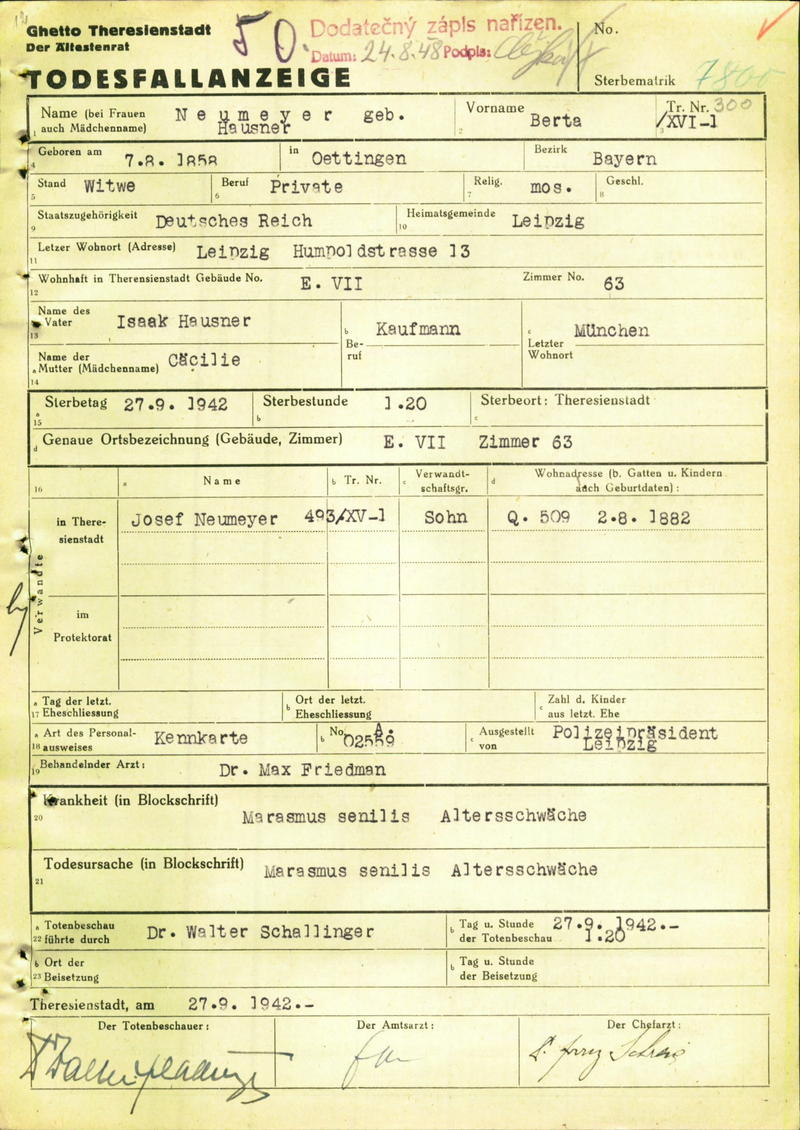 Ghetto Theresienstadt
Der Ältestenrat
50
Dodatečný zápis nařízen.
Datum: 24.8.48 Podpis:
No.
TODESFALLANZEIGE
Sterbematrik
Name (bei Frauen auch Mädchenname) Neumeyer geb. Hausner
Vorname Berta
Tr. Nr. 300
/XVI-1
Geboren am 7.8. 1858 in Oettingen Bezirk Bayern
Stand Witwe Beruf Private Relig. mos. Geschl.
Staatszugehörigkeit Deutsches Reich Heimatsgemeinde Leipzig
Letzer Wohnort (Adresse) Leipzig Humpoldstrasse 13
Wohnhaft in Therensienstadt Gebäude No. E. VII Zimmer No. 63
Name des Vater Isaak Hausner
Name der Mutter (Mädchenname) Cäcilie
Beruf Kaufmann
Letzter Wohnort München
Sterbetag 27.9. 1942 Sterbestunde 1.20 Sterbeort: Theresienstadt
Genaue Ortsbezeichnung (Gebäude, Zimmer) E. VII Zimmer 63
Name Tr. Nr. Verwandtschaftsgr. Wohnadresse (b. Gatten u. Kindern auch Geburtdaten):
Verwandte
in Theresienstadt Josef Neumeyer 493/XV-1 Sohn Q. 509 2.8. 1882
im Protektorat
Tag der letzt. Eheschliessung Ort der letzt. Eheschliessung Zahl d. Kinder aus letzt. Ehe
Art des Personalausweises Kennkarte No. A. Ausgestellt von Polizeipräsident Leipzig
Behandelnder Arzt: Dr. Max Friedman
Krankheit (in Blockschrift)
Marasmus senilis Altersschwäche
Todesursache (in Blockschrift) Marasmus senilis Altersschwäche
Totenbeschau führte durch Dr. Walter Schallinger Tag u. Stunde der Totenbeschau 27.9. 1942.- 1.20
Ort der Beisetzung Tag u. Stunde der Beisetzung
Theresienstadt, am 27.9. 1942.-
Der Totenbeschauer: Der Amtsarzt: Der Chefarzt: